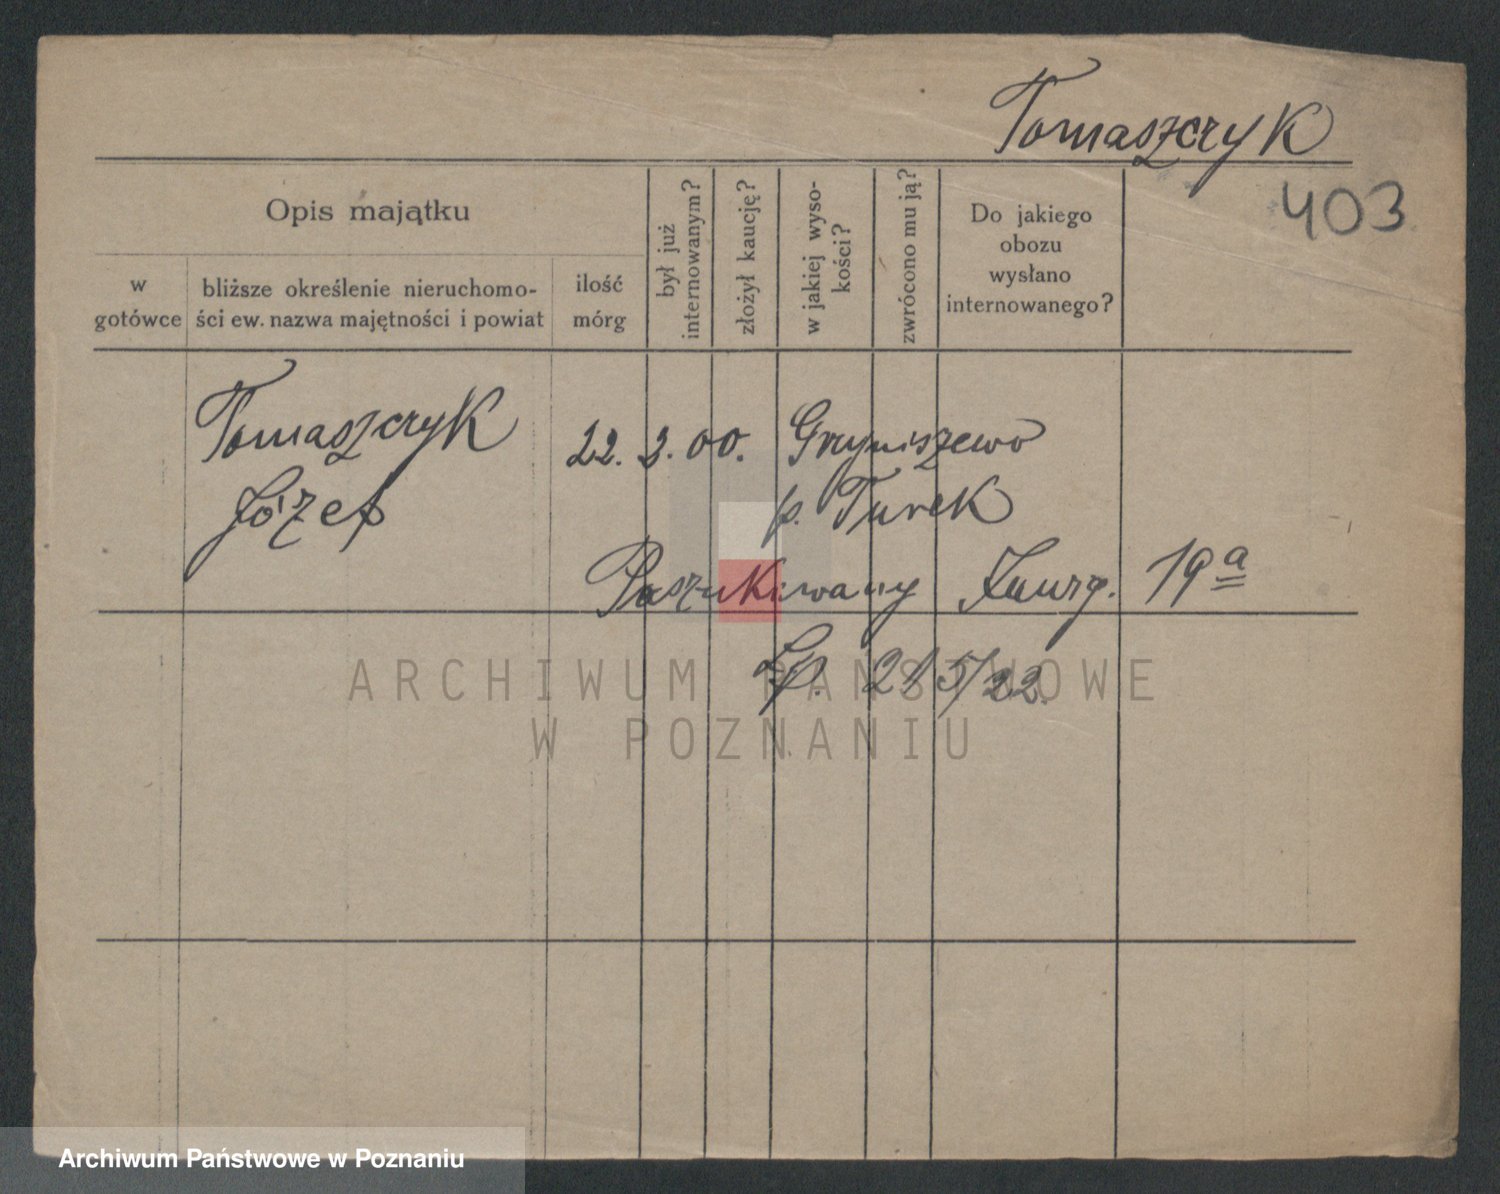 Tomaszczyk
403
Opis majątku
w gotówce
bliższe określenie nieruchomo-
ści ew. nazwa majętności i powiat
ilość mórg
był już internowanym?
złożył kaucję?
w jakiej wyso-
kości?
zwrócono mu ją?
Do jakiego
obozu
wysłano
internowanego?
Tomaszczyk 22. 2. 00.
Józef p. Turek
Poszukiwany 19 a
Lp. 215/22.
ARCHIWUM PAŃSTWOWE
W POZNANIU
Archiwum Państwowe w Poznaniu